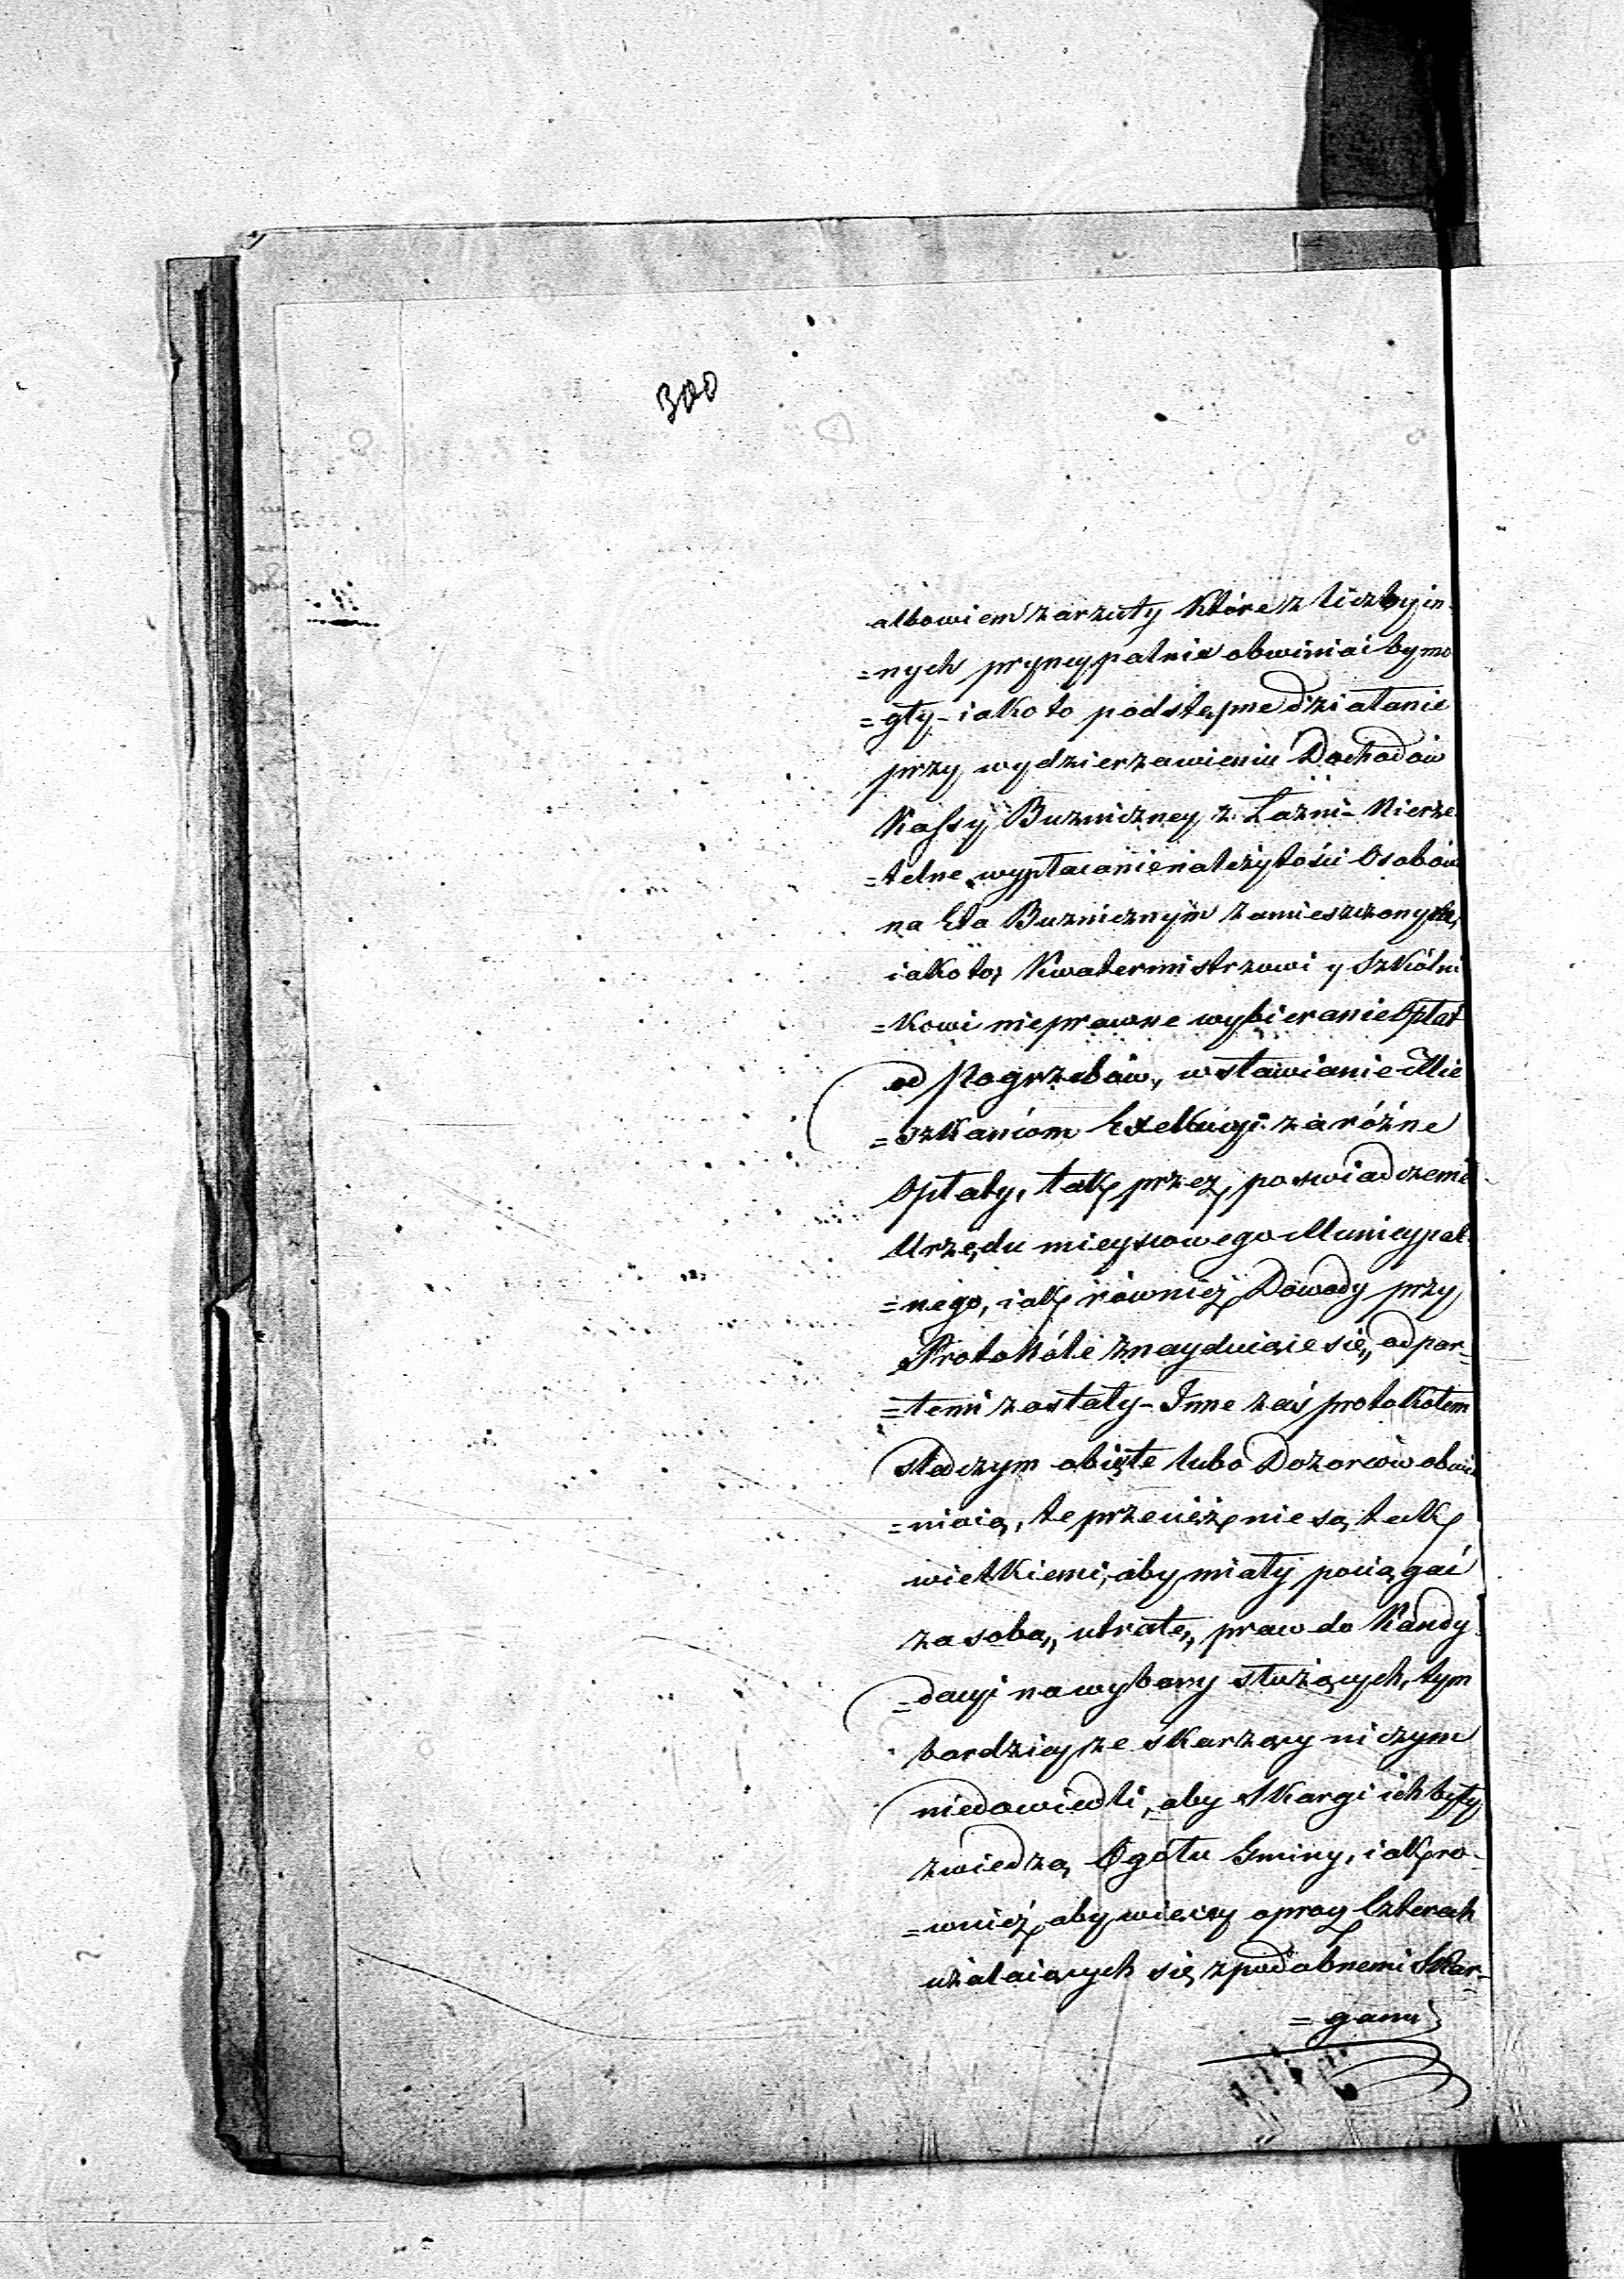 300
albowiem zarzuty które z liczby in-
=nych pryncypalnie obwiniai by mo
=gły - iako to podstępne działanie
przy wydzierzawieniu Dochodów
Kassy Buzniczney z Łazni - Nierze
=telne wypłacanie należytości Osobów
na Eta Buznicznym zamieszczonych,
iako to, Kwatermistrzowi y Szkólni
=kowi nieprawne wybieranie Opłat
od Pogrzebów, wstawianie Mie
=szkańcom Exekucyi za różne
Opłaty, tak przez poswiadczenie
Urzędu mieyscowego Municypal-
=nego, iak równiez Dowody przy
Protokóle znayduiące się, odpar-
=temi zostały - Inne zaś protokołem
śledczym obięte lubo Dozorców obwi
=niaią, te przecież nie są tak
wielkiemi, aby miały pociągać
za sobą, utratę, praw do Kandy
=dacyi na wybory służących, tym
bardziey ze skarzący niczym
niedowiedli, aby Skargi ich były
z wiedzą Ogółu Gminy, iak ro-
=wnież, aby więcey oprócz Czterech
użalaiących się z podobnemi Skar-
=gami